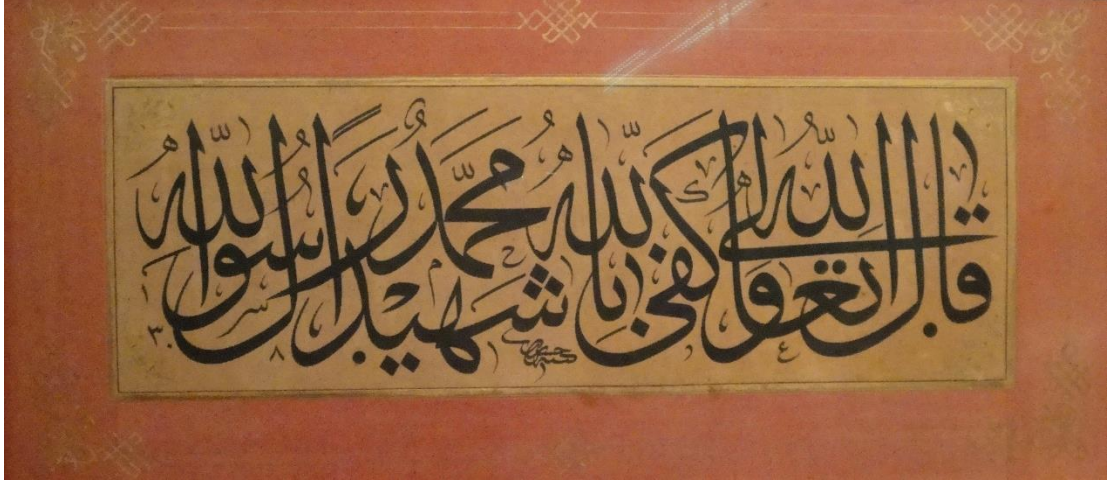 قال الله تعالى وكفى بالله شهيدًا محمد رسول الله